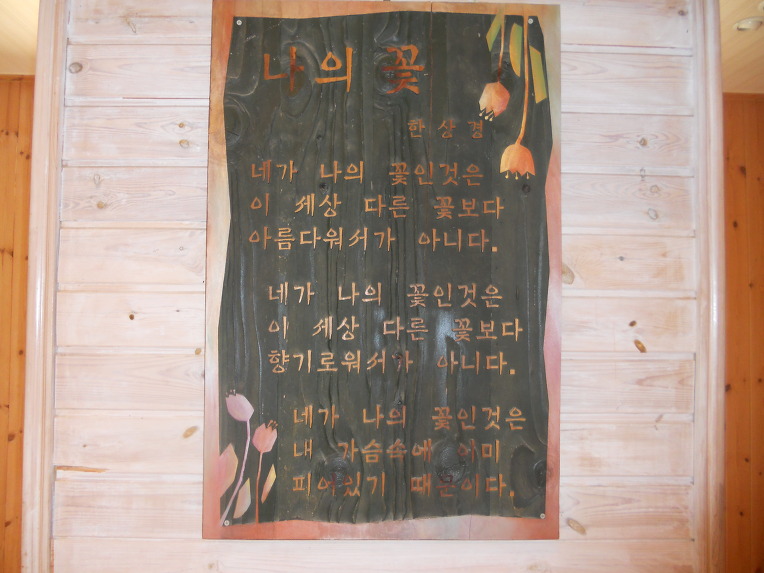 나의 꽃
한상경
네가 나의 꽃인것은
이 세상 다른 꽃보다
아름다워서가 아니다.
네가 나의 꽃인것은
이 세상 다른 꽃보다
향기로워서가 아니다.
네가 나의 꽃인것은
내 가슴속에 이미
피어있기 때문이다.